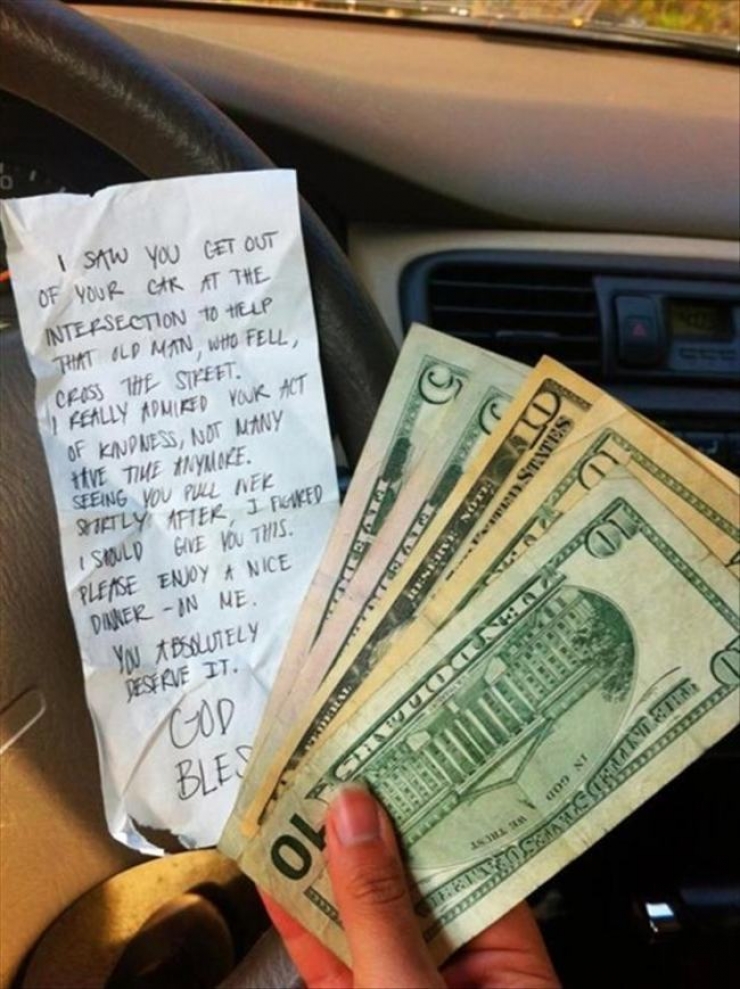 I SAW YOU GET OUT
OF YOUR CAR AT THE
INTERSECTION TO HELP
THAT OLD MAN, WHO FELL,
CROSS THE STREET.
I REALLY ADMIRED YOUR ACT
OF KINDNESS, NOT MANY
HAVE TIME ANYMORE.
SEEING YOU PULL OVER
SHORTLY AFTER, I FIGURED
I SHOULD GIVE YOU THIS.
PLEASE ENJOY A NICE
DINNER - ON ME.
YOU ABSOLUTELY
DESERVE IT.
GOD
BLES
10
IN GOD
WE TRUST